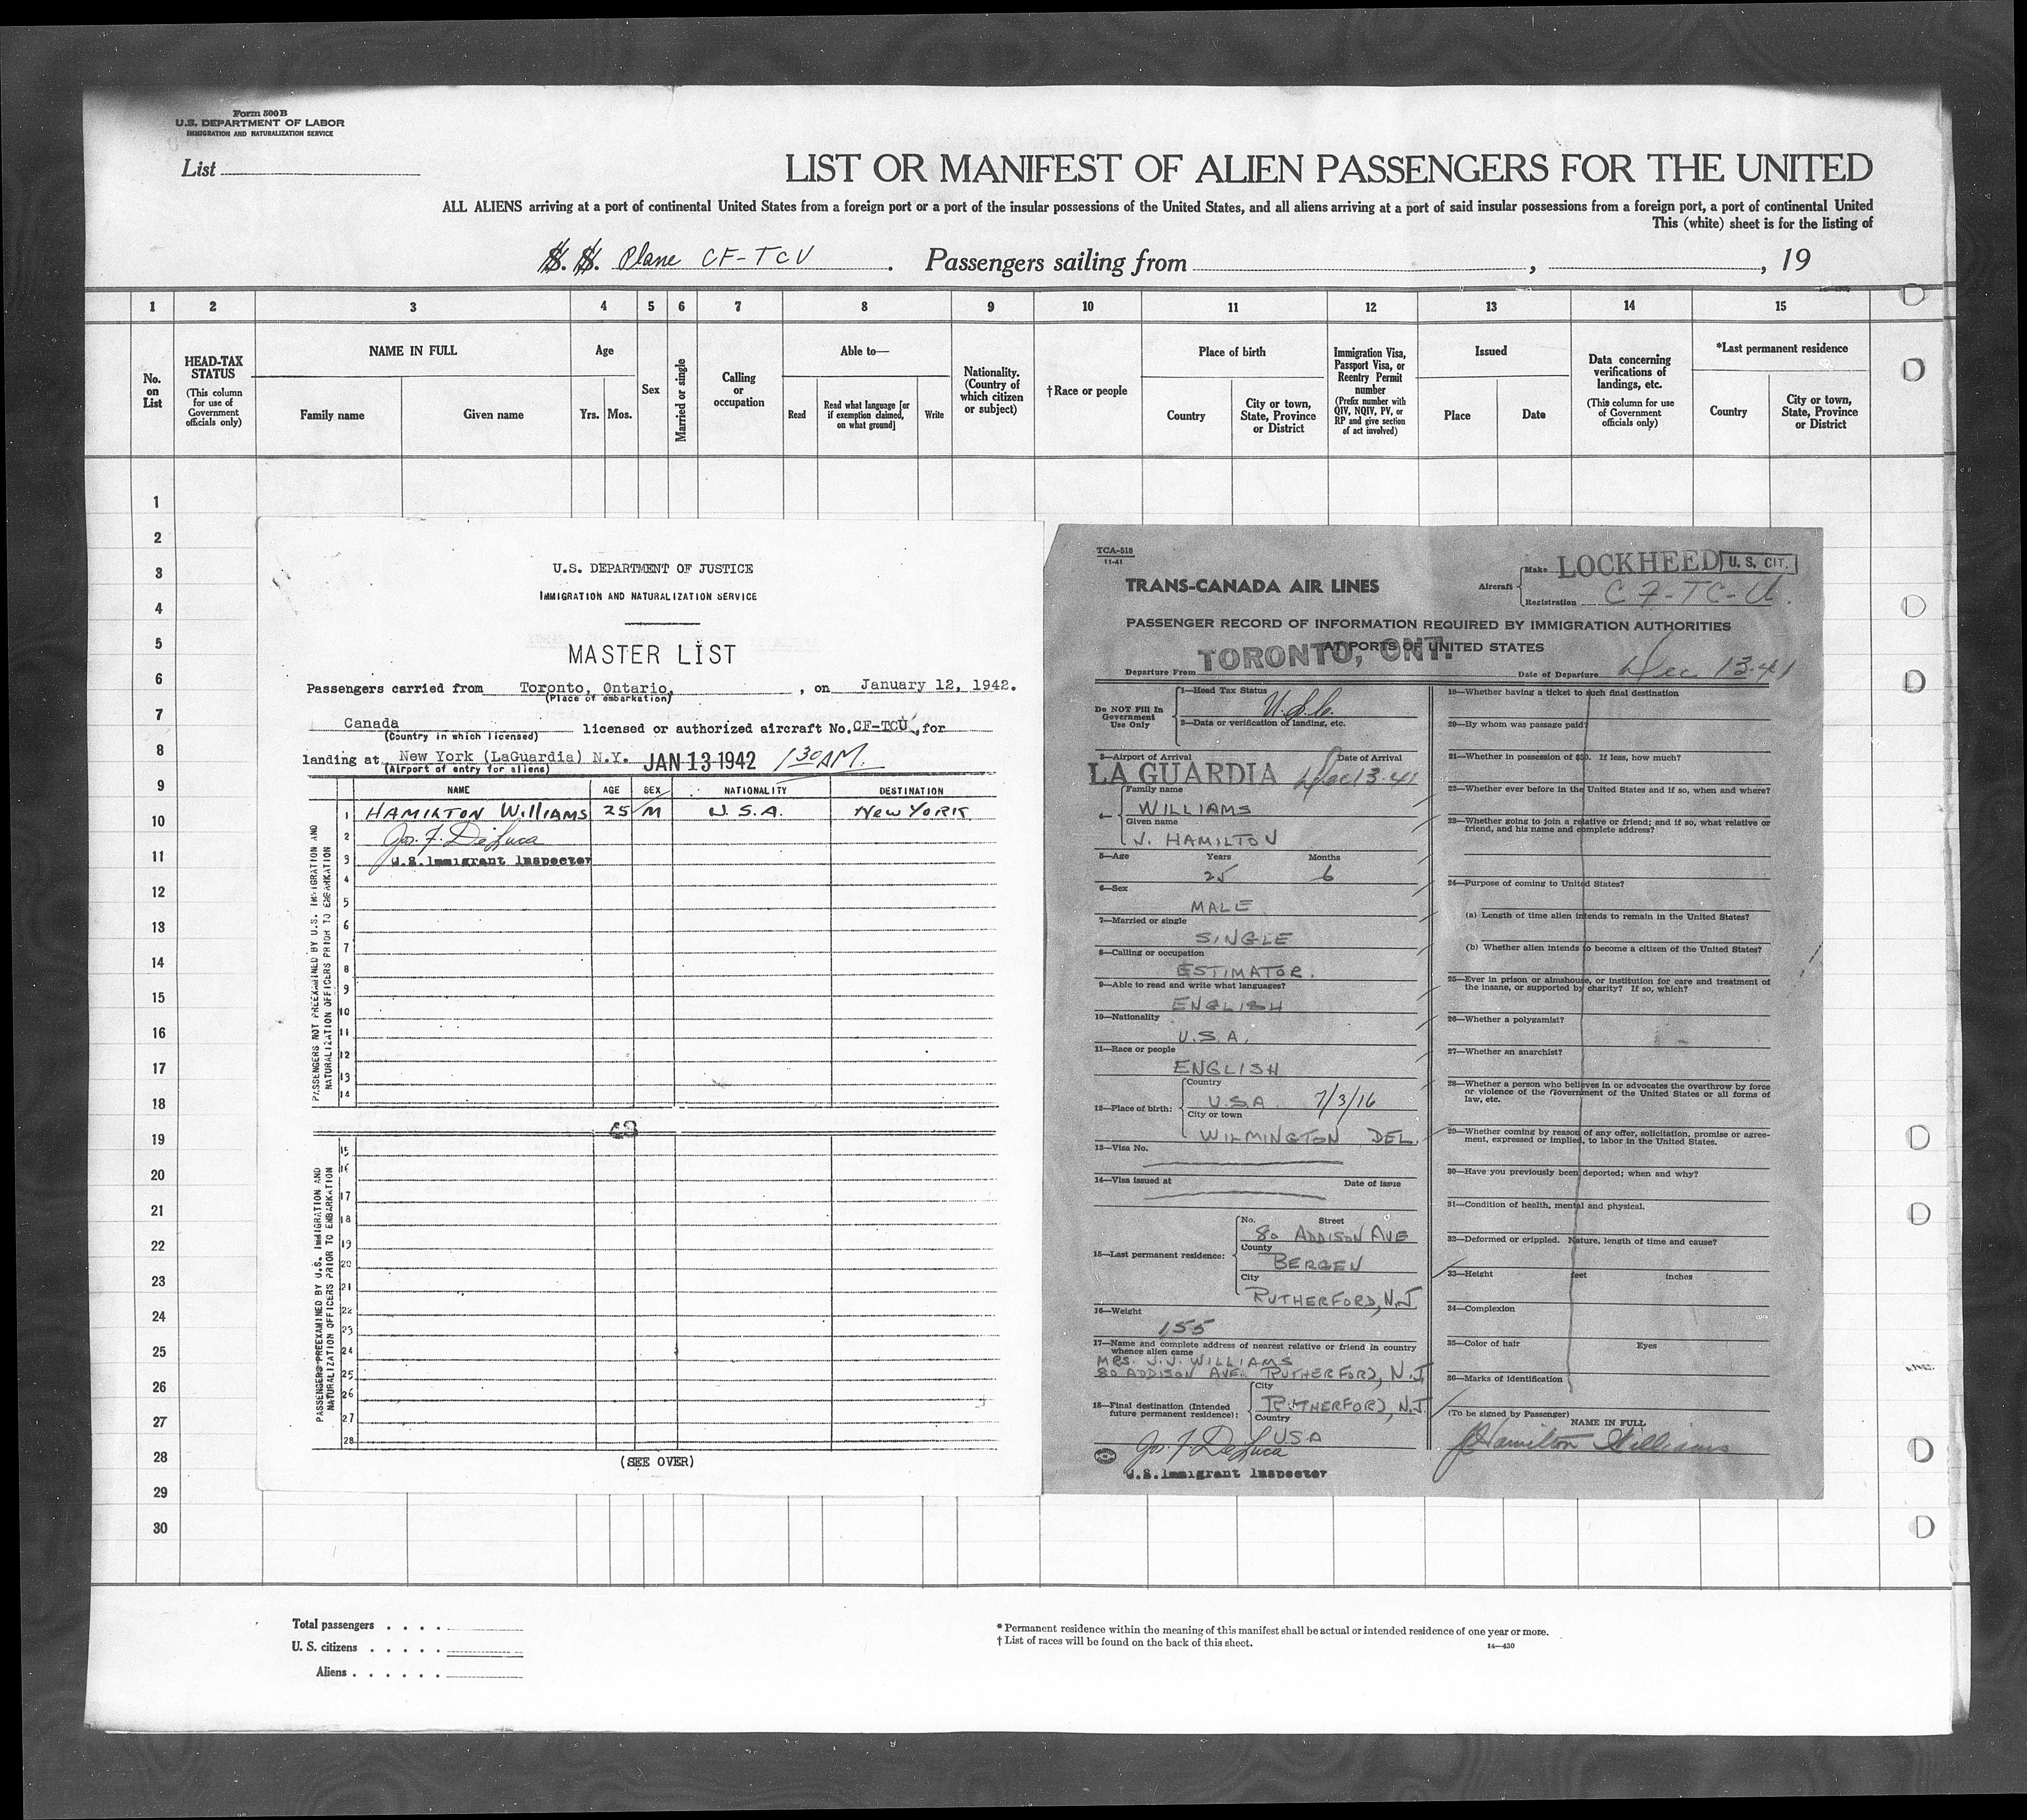 Form 500 B
U.S. DEPARTMENT OF LABOR
IMMIGRATION AND NATURALIZATION SERVICE
List
LIST OR MANIFEST OF ALIEN PASSENGERS FOR THE UNITED
ALL ALIENS arriving at a port of continental United States from a foreign port or a port of the insular possessions of the United States, and all aliens arriving at a port of said insular possessions from a foreign port, a port of continental United
This (white) sheet is for the listing of
S. S. Plane CF-TCU . Passengers sailing from , , 19
1 2 3 4 5 6 7 8 9 10 11 12 13 14 15
No. on List
HEAD-TAX STATUS
(This column for use of Government officials only)
NAME IN FULL
Family name
Given name
Age
Yrs. Mos.
Sex
Married or single
Calling or occupation
Able to—
Read
Read what language [or if exemption claimed, on what ground]
Write
Nationality. (Country of which citizen or subject)
†Race or people
Place of birth
Country
City or town, State, Province or District
Immigration Visa, Passport Visa, or Reentry Permit number
(Prefix number with QIV, NQIV, PV, or RP and give section of act involved)
Issued
Place
Date
Data concerning verifications of landings, etc.
(This column for use of Government officials only)
*Last permanent residence
Country
City or town, State, Province or District
1
2
3
4
5
6
7
8
9
10
11
12
13
14
15
16
17
18
19
20
21
22
23
24
25
26
27
28
29
30
U.S. DEPARTMENT OF JUSTICE
IMMIGRATION AND NATURALIZATION SERVICE
MASTER LIST
Passengers carried from Toronto, Ontario, , on January 12, 1942.
(Place of embarkation)
Canada licensed or authorized aircraft No. CF-TCU , for
(Country in which licensed)
landing at New York (LaGuardia) N.Y. JAN 13 1942 1 30 AM.
(Airport of entry for aliens)
NAME AGE SEX NATIONALITY DESTINATION
PASSENGERS NOT PREEXAMINED BY U.S. IMMIGRATION AND NATURALIZATION OFFICERS PRIOR TO EMBARKATION
1 HAMILTON WILLIAMS 25 M U.S.A. NEW YORK
2 Jos. F. DeLuca
3 U.S. Immigrant Inspector
4
5
6
7
8
9
10
11
12
13
14
48
PASSENGERS PREEXAMINED BY U.S. IMMIGRATION AND NATURALIZATION OFFICERS PRIOR TO EMBARKATION
15
16
17
18
19
20
21
22
23
24
25
26
27
28
(SEE OVER)
TCA-518
11-41
TRANS-CANADA AIR LINES
Aircraft Make LOCKHEED U. S. CIT.
Registration CF-TC-U.
PASSENGER RECORD OF INFORMATION REQUIRED BY IMMIGRATION AUTHORITIES
AT PORTS OF UNITED STATES
Departure From TORONTO, ONT. Date of Departure Dec 13-41
Do NOT Fill In Government Use Only
1—Head Tax Status U.S.C.
2—Data or verification of landing, etc.
3—Airport of Arrival Date of Arrival
LA GUARDIA Dec 13-41
4— Family name
WILLIAMS
Given name
J. HAMILTON
5—Age Years Months
25 6
6—Sex
MALE
7—Married or single
SINGLE
8—Calling or occupation
ESTIMATOR.
9—Able to read and write what languages?
ENGLISH
10—Nationality
U.S.A.
11—Race or people
ENGLISH
12—Place of birth:
Country
U.S.A. 7/3/16
City or town
WILMINGTON DEL.
13—Visa No.
14—Visa issued at Date of issue
15—Last permanent residence:
No. Street
80 ADDISON AVE
County
BERGEN
City
RUTHERFORD, N.J
16—Weight
155
17—Name and complete address of nearest relative or friend in country
whence alien came
MRS. J.J. WILLIAMS
80 ADDISON AVE. RUTHERFORD, N.J
18—Final destination (Intended future permanent residence):
City
RUTHERFORD, N.J.
Country
USA
Jos. F. DeLuca
U.S. Immigrant Inspector
19—Whether having a ticket to such final destination
20—By whom was passage paid?
21—Whether in possession of $50. If less, how much?
22—Whether ever before in the United States and if so, when and where?
23—Whether going to join a relative or friend; and if so, what relative or
friend, and his name and complete address?
24—Purpose of coming to United States?
(a) Length of time alien intends to remain in the United States?
(b) Whether alien intends to become a citizen of the United States?
25—Ever in prison or almshouse, or institution for care and treatment of
the insane, or supported by charity? If so, which?
26—Whether a polygamist?
27—Whether an anarchist?
28—Whether a person who believes in or advocates the overthrow by force
or violence of the Government of the United States or all forms of
law, etc.
29—Whether coming by reason of any offer, solicitation, promise or agree-
ment, expressed or implied, to labor in the United States.
30—Have you previously been deported; when and why?
31—Condition of health, mental and physical.
32—Deformed or crippled. Nature, length of time and cause?
33—Height feet inches
34—Complexion
35—Color of hair Eyes
36—Marks of identification
(To be signed by Passenger)
NAME IN FULL
J Hamilton Williams
Total passengers
U. S. citizens
Aliens
* Permanent residence within the meaning of this manifest shall be actual or intended residence of one year or more.
† List of races will be found on the back of this sheet.
14—430